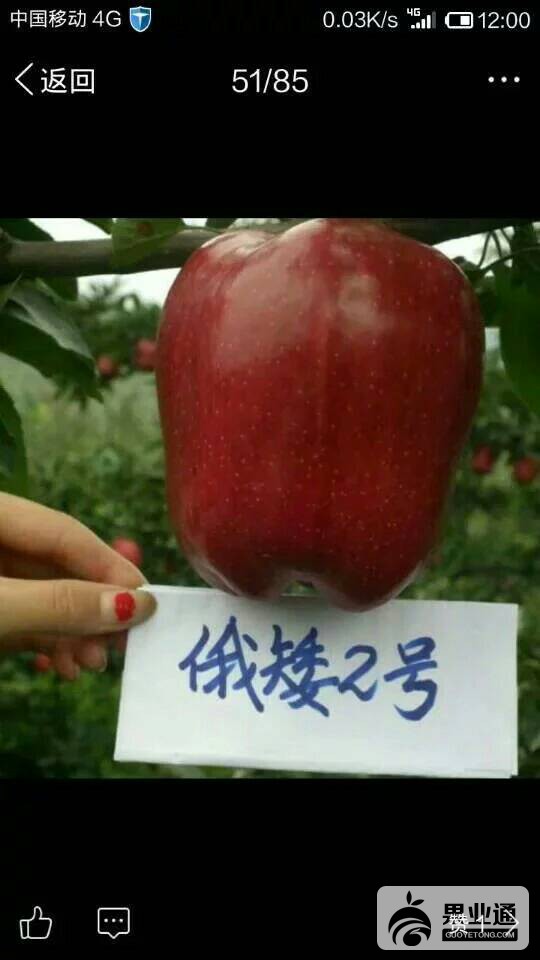 中国移动 4G 0.03K/s 4G 12:00
返回 51/85 ...
俄矮2号
果业通
赞 1
GUOYETONG.COM